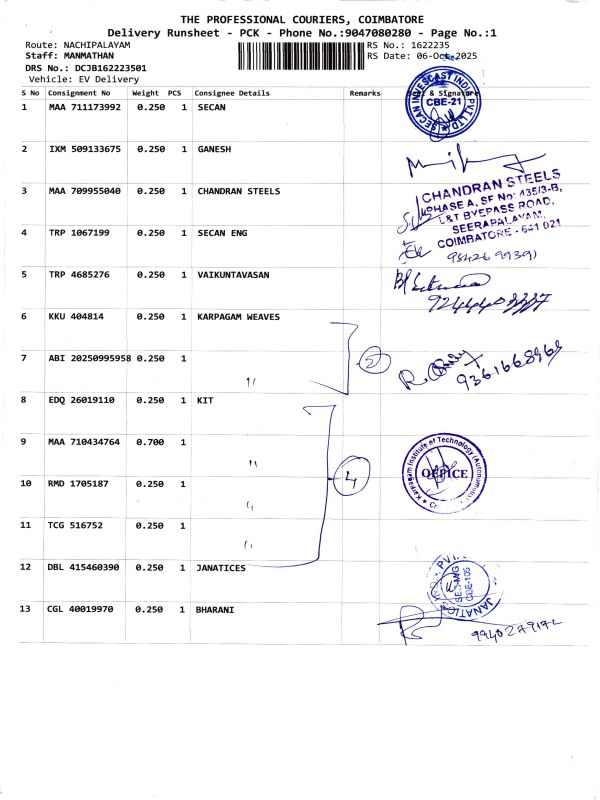 THE PROFESSIONAL COURIERS, COIMBATORE
Delivery Runsheet - PCK - Phone No.:9047080280 - Page No.:1
Route: NACHIPALAYAM
RS No.: 1622235
Staff: MANMATHAN
RS Date: 06-Oct-2025
DRS No.: DCJB162223501
Vehicle: EV Delivery
S No Consignment No Weight PCS Consignee Details Remarks & Signature
1 MAA 711173992 0.250 1 SECAN
SECAN INVESCAST INDIA PVT LTD
CBE-21
2 IXM 509133675 0.250 1 GANESH
3 MAA 709955040 0.250 1 CHANDRAN STEELS
CHANDRAN STEELS
PHASE A, SF No: 435/3-B,
L&T BYEPASS ROAD,
SEERAPALAYAM,
COIMBATORE - 641 021
4 TRP 1067199 0.250 1 SECAN ENG
5 TRP 4685276 0.250 1 VAIKUNTAVASAN
6 KKU 404814 0.250 1 KARPAGAM WEAVES
7 ABI 20250995958 0.250 1 "
2
9361668968
8 EDQ 26019110 0.250 1 KIT
9 MAA 710434764 0.700 1 "
Karpagam Institute of Technology (Autonomous)
OFFICE
10 RMD 1705187 0.250 1 "
4
11 TCG 516752 0.250 1 "
12 DBL 415460390 0.250 1 JANATICES
13 CGL 40019970 0.250 1 BHARANI